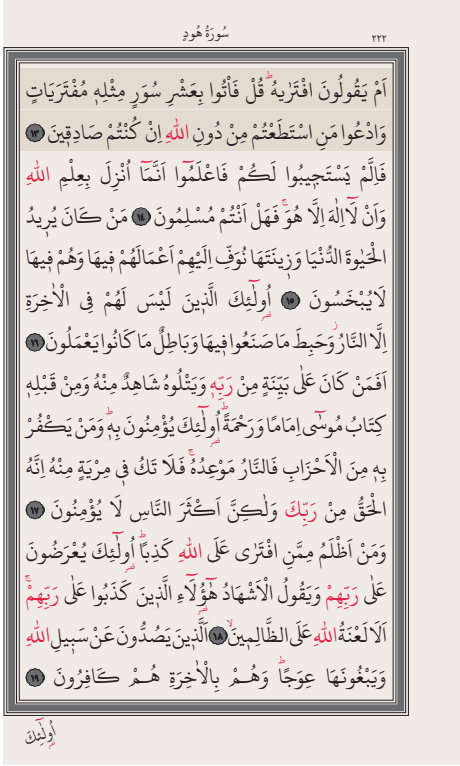 سُورَةُ هُودٍ
٢٢٢
اَمْ يَقُولُونَ افْتَرٰيهُۜ قُلْ فَأْتُوا بِعَشْرِ سُوَرٍ مِثْلِه۪ مُفْتَرَيَاتٍ
وَادْعُوا مَنِ اسْتَطَعْتُمْ مِنْ دُونِ اللّٰهِ اِنْ كُنْتُمْ صَادِق۪ينَ ﴿١٣﴾
فَاِلَّمْ يَسْتَج۪يبُوا لَكُمْ فَاعْلَمُٓوا اَنَّمَٓا اُنْزِلَ بِعِلْمِ اللّٰهِ
وَاَنْ لَٓا اِلٰهَ اِلَّا هُوَۚ فَهَلْ اَنْتُمْ مُسْلِمُونَ ﴿١٤﴾ مَنْ كَانَ يُر۪يدُ
الْحَيٰوةَ الدُّنْيَا وَز۪ينَتَهَا نُوَفِّ اِلَيْهِمْ اَعْمَالَهُمْ ف۪يهَا وَهُمْ ف۪يهَا
لَا يُبْخَسُونَ ﴿١٥﴾ اُو۬لٰٓئِكَ الَّذ۪ينَ لَيْسَ لَهُمْ فِي الْاٰخِرَةِ
اِلَّا النَّارُۘ وَحَبِطَ مَا صَنَعُوا ف۪يهَا وَبَاطِلٌ مَا كَانُوا يَعْمَلُونَ ﴿١٦﴾
اَفَمَنْ كَانَ عَلٰى بَيِّنَةٍ مِنْ رَبِّه۪ وَيَتْلُوهُ شَاهِدٌ مِنْهُ وَمِنْ قَبْلِه۪
كِتَابُ مُوسٰٓى اِمَامًا وَرَحْمَةًۜ اُو۬لٰٓئِكَ يُؤْمِنُونَ بِه۪ۜ وَمَنْ يَكْفُرْ
بِه۪ مِنَ الْاَحْزَابِ فَالنَّارُ مَوْعِدُهُۚ فَلَا تَكُ ف۪ي مِرْيَةٍ مِنْهُ اِنَّهُ
الْحَقُّ مِنْ رَبِّكَ وَلٰكِنَّ اَكْثَرَ النَّاسِ لَا يُؤْمِنُونَ ﴿١٧﴾
وَمَنْ اَظْلَمُ مِمَّنِ افْتَرٰى عَلَى اللّٰهِ كَذِبًاۜ اُو۬لٰٓئِكَ يُعْرَضُونَ
عَلٰى رَبِّهِمْ وَيَقُولُ الْاَشْهَادُ هٰٓؤُ۬لَٓاءِ الَّذ۪ينَ كَذَبُوا عَلٰى رَبِّهِمْۚ
اَلَا لَعْنَةُ اللّٰهِ عَلَى الظَّالِم۪ينَۙ ﴿١٨﴾ اَلَّذ۪ينَ يَصُدُّونَ عَنْ سَب۪يلِ اللّٰهِ
وَيَبْغُونَهَا عِوَجًاۜ وَهُمْ بِالْاٰخِرَةِ هُمْ كَافِرُونَ ﴿١٩﴾
اُو۬لٰٓئِكَ